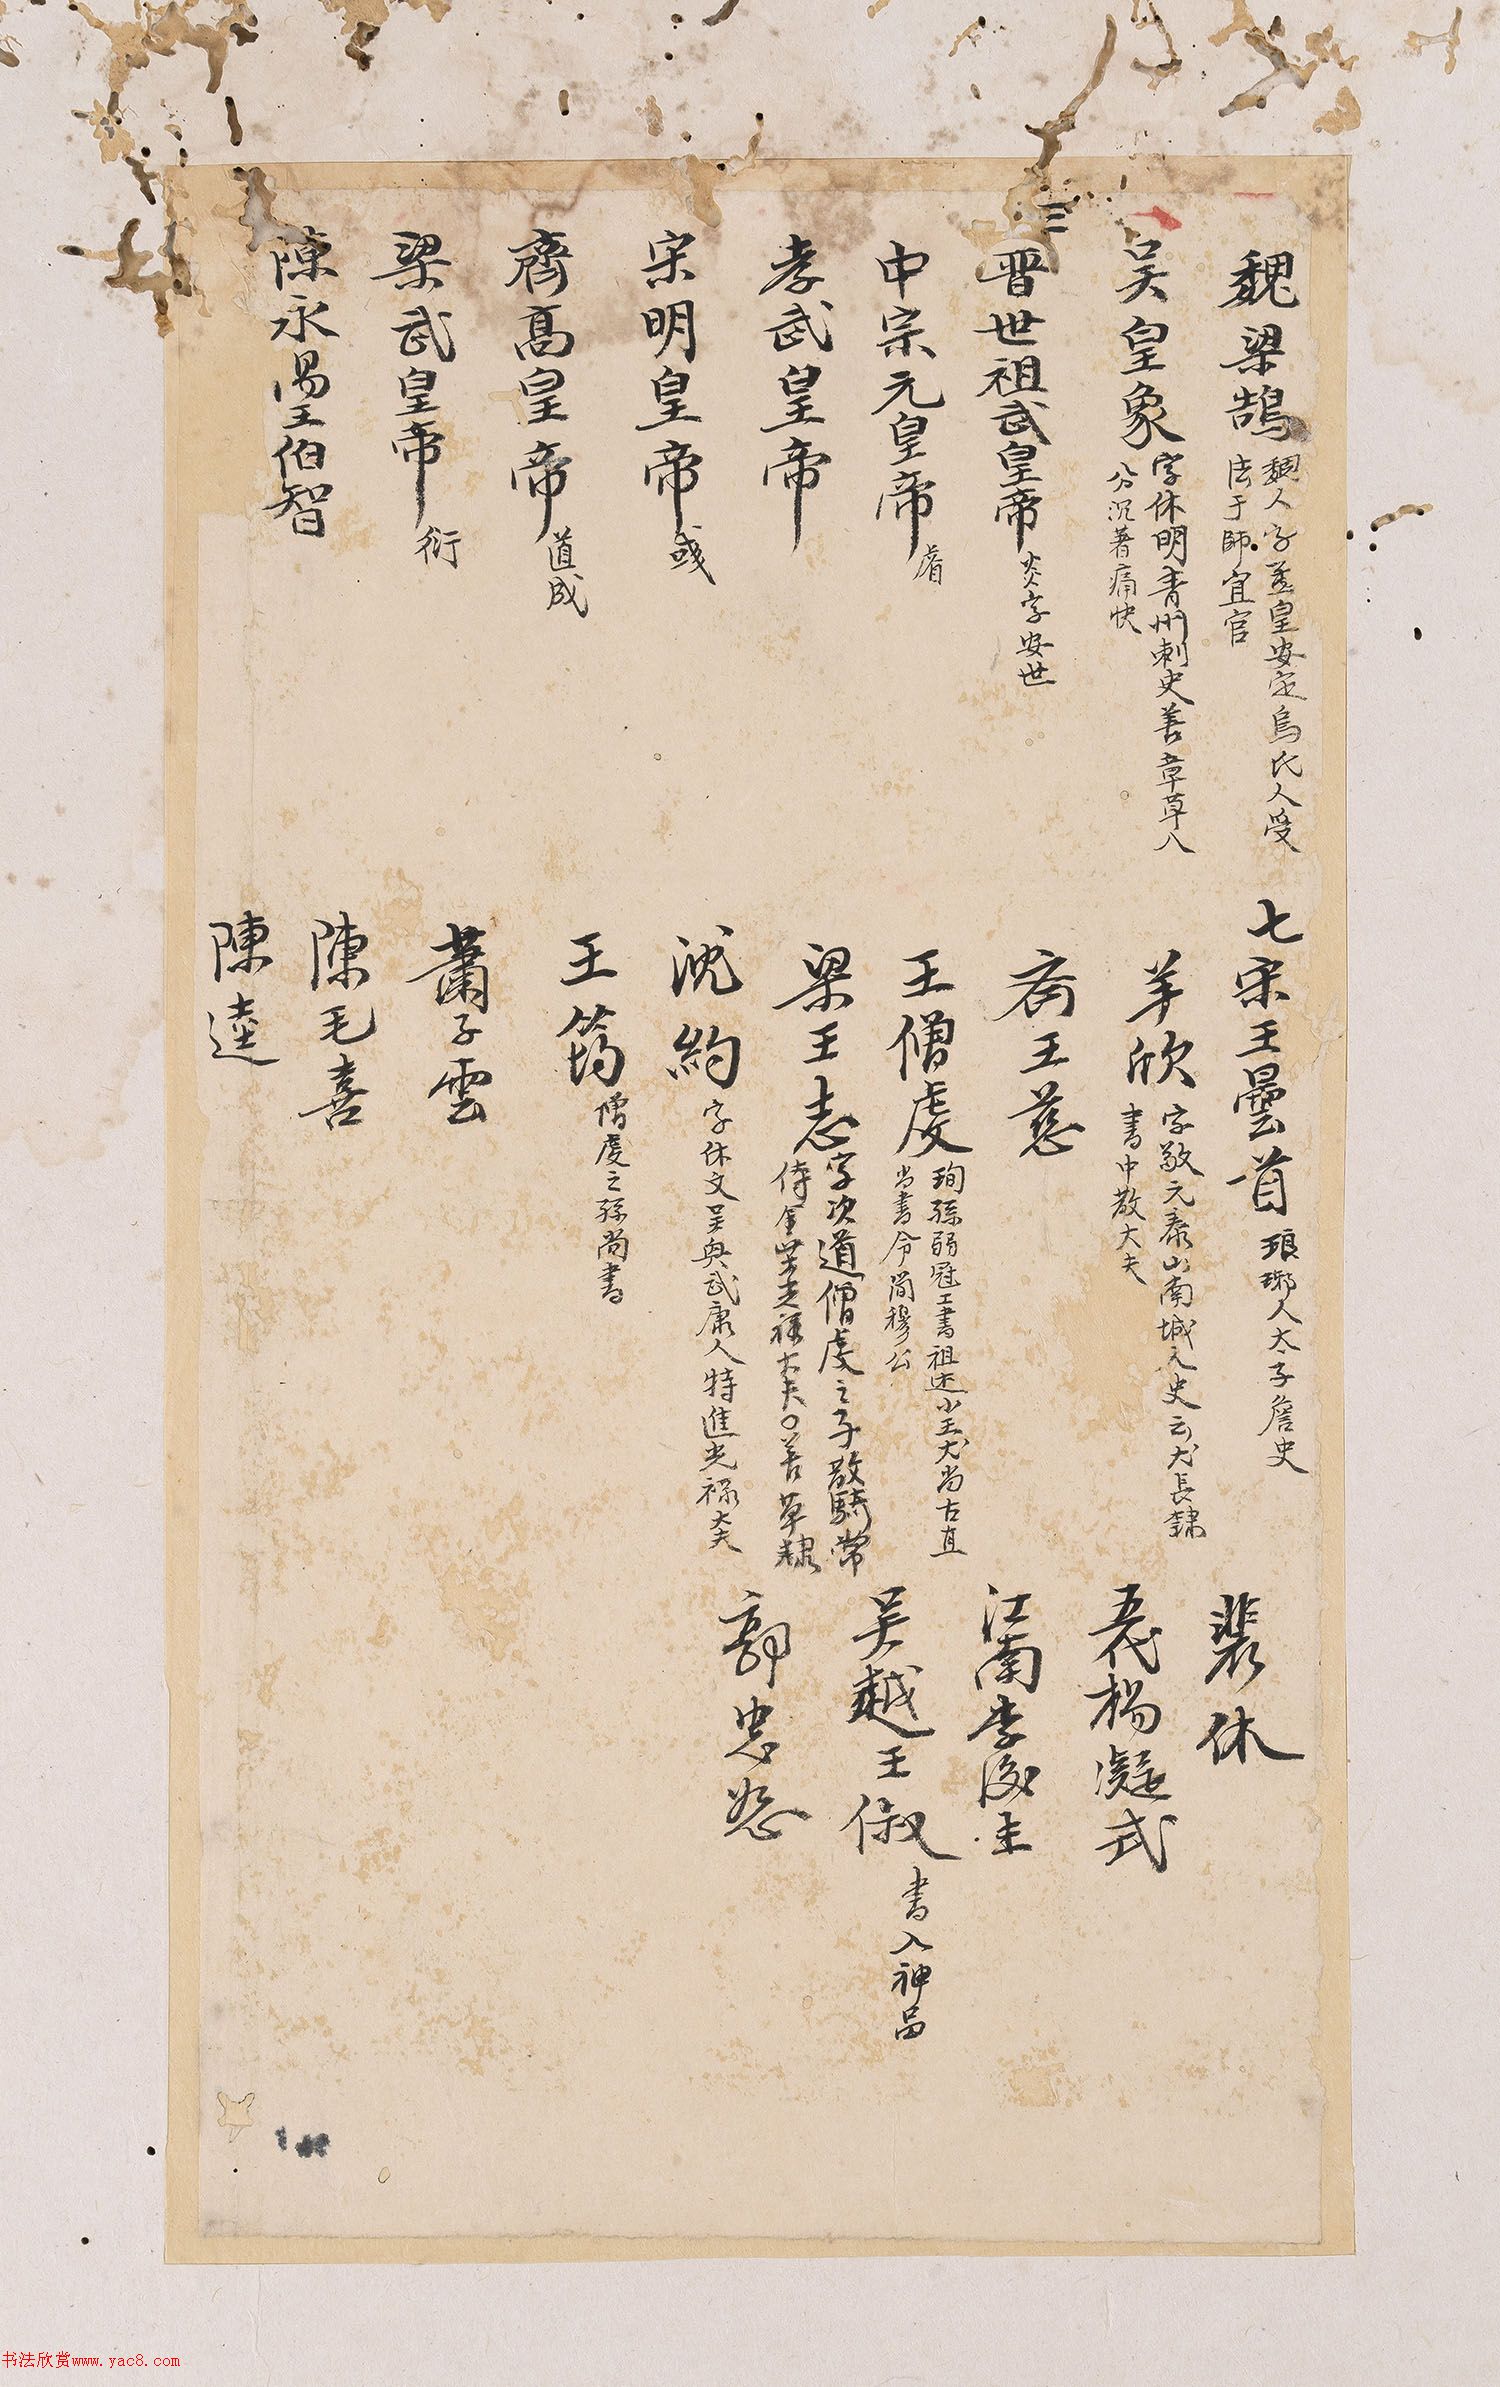 魏梁鵠
魏人字孟皇安定烏氏人受
法于師宜官
吴皇象
字休明青州刺史善章草八
分沉著痛快
三
晋世祖武皇帝
炎字安世
中宗元皇帝
睿
孝武皇帝
宋明皇帝
彧
齊高皇帝
道成
梁武皇帝
衍
陳永陽王伯智
七宋王曇首
琅琊人太子詹史
羊欣
字敬元泰山南城人史云尤長隸
書中散大夫
齊王慈
王僧虔
珣孫弱冠工書祖述小王尤尚古直
尚書令簡穆公
梁王志
字次道僧虔之子散騎常
侍金紫光祿大夫善草隸
沈約
字休文吴興武康人特進光祿大夫
王筠
僧虔之孫尚書
蕭子雲
陳毛喜
陳逵
裴休
五代楊凝式
江南李後主
吴越王俶
書入神品
郭忠恕
书法欣赏www.yac8.com